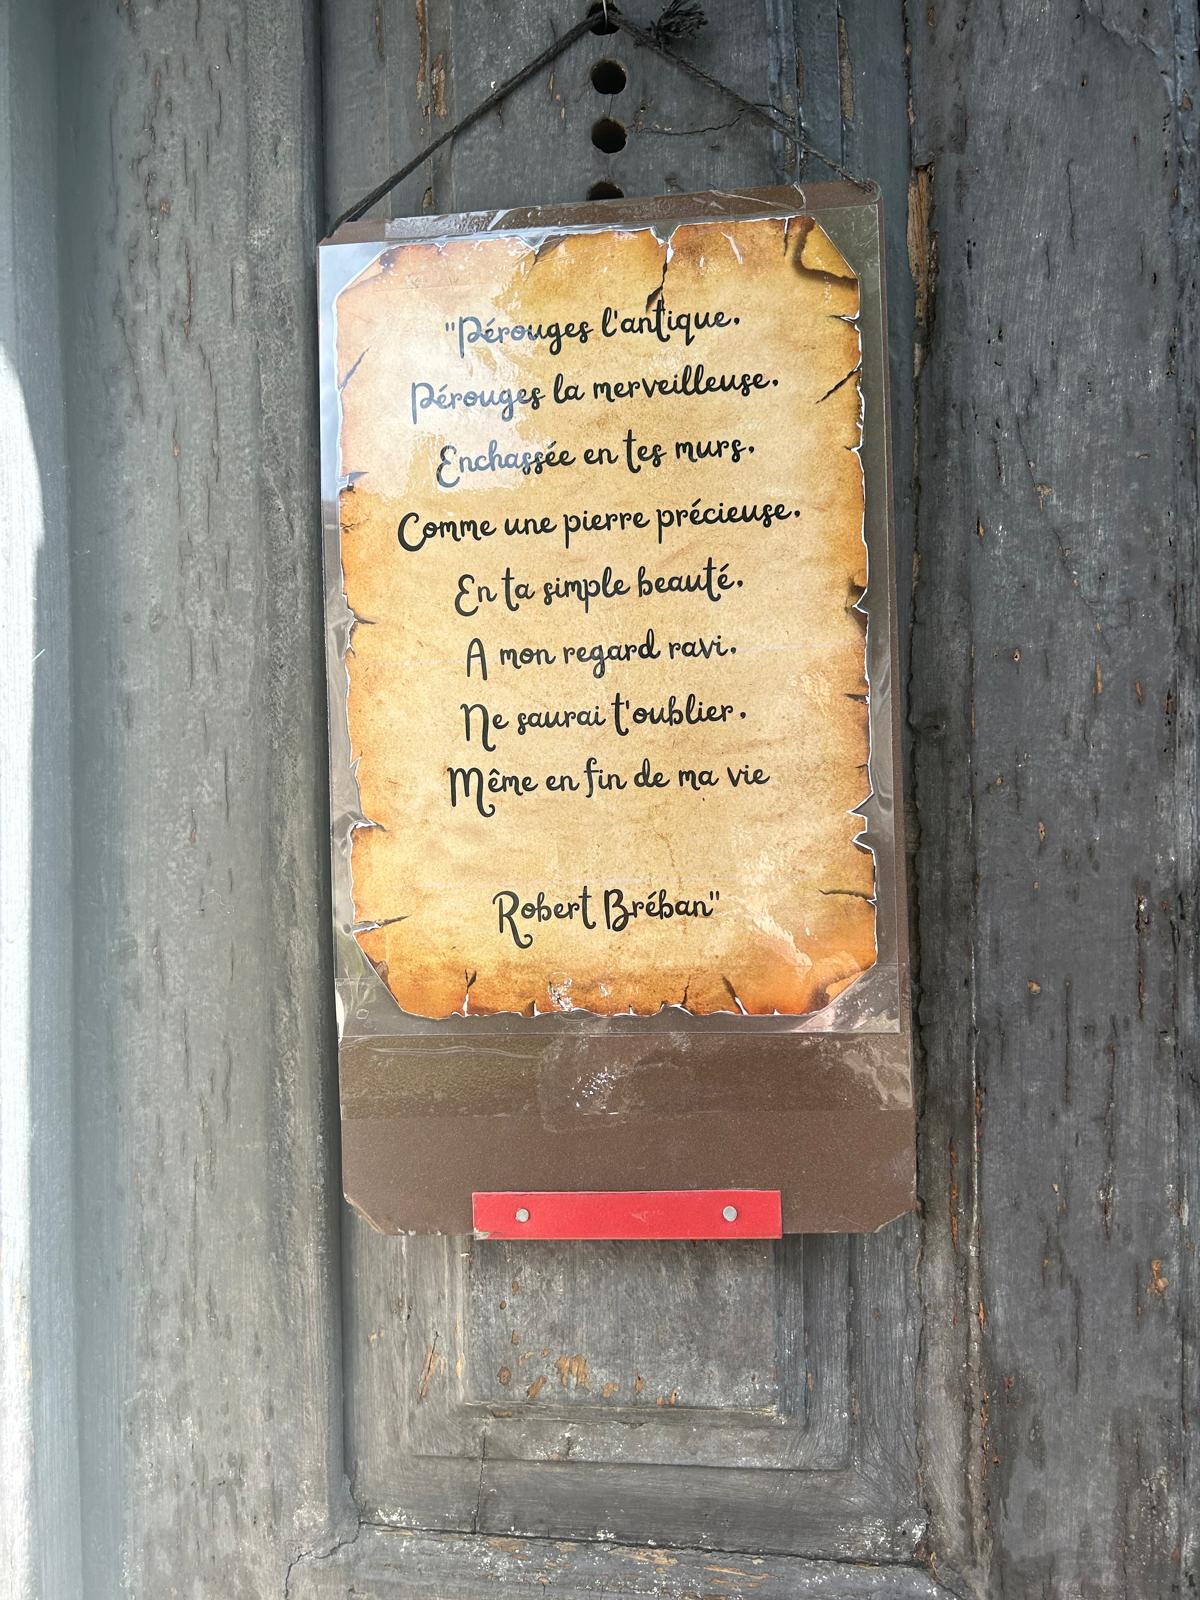 "Pérouges l'antique.
Pérouges la merveilleuse.
Enchassée en tes murs.
Comme une pierre précieuse.
En ta simple beauté.
A mon regard ravi.
Ne saurai t'oublier.
Même en fin de ma vie
Robert Bréban"